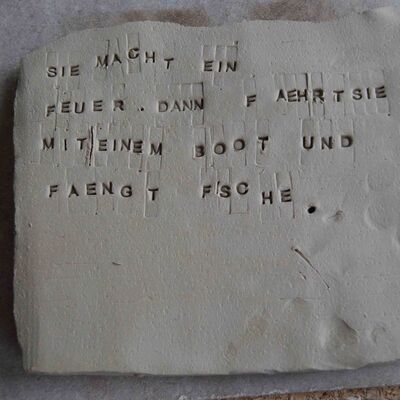 SIE MACHT EIN
FEUER. DANN FAEHRT SIE
MIT EINEM BOOT UND
FAENGT FSCHE.